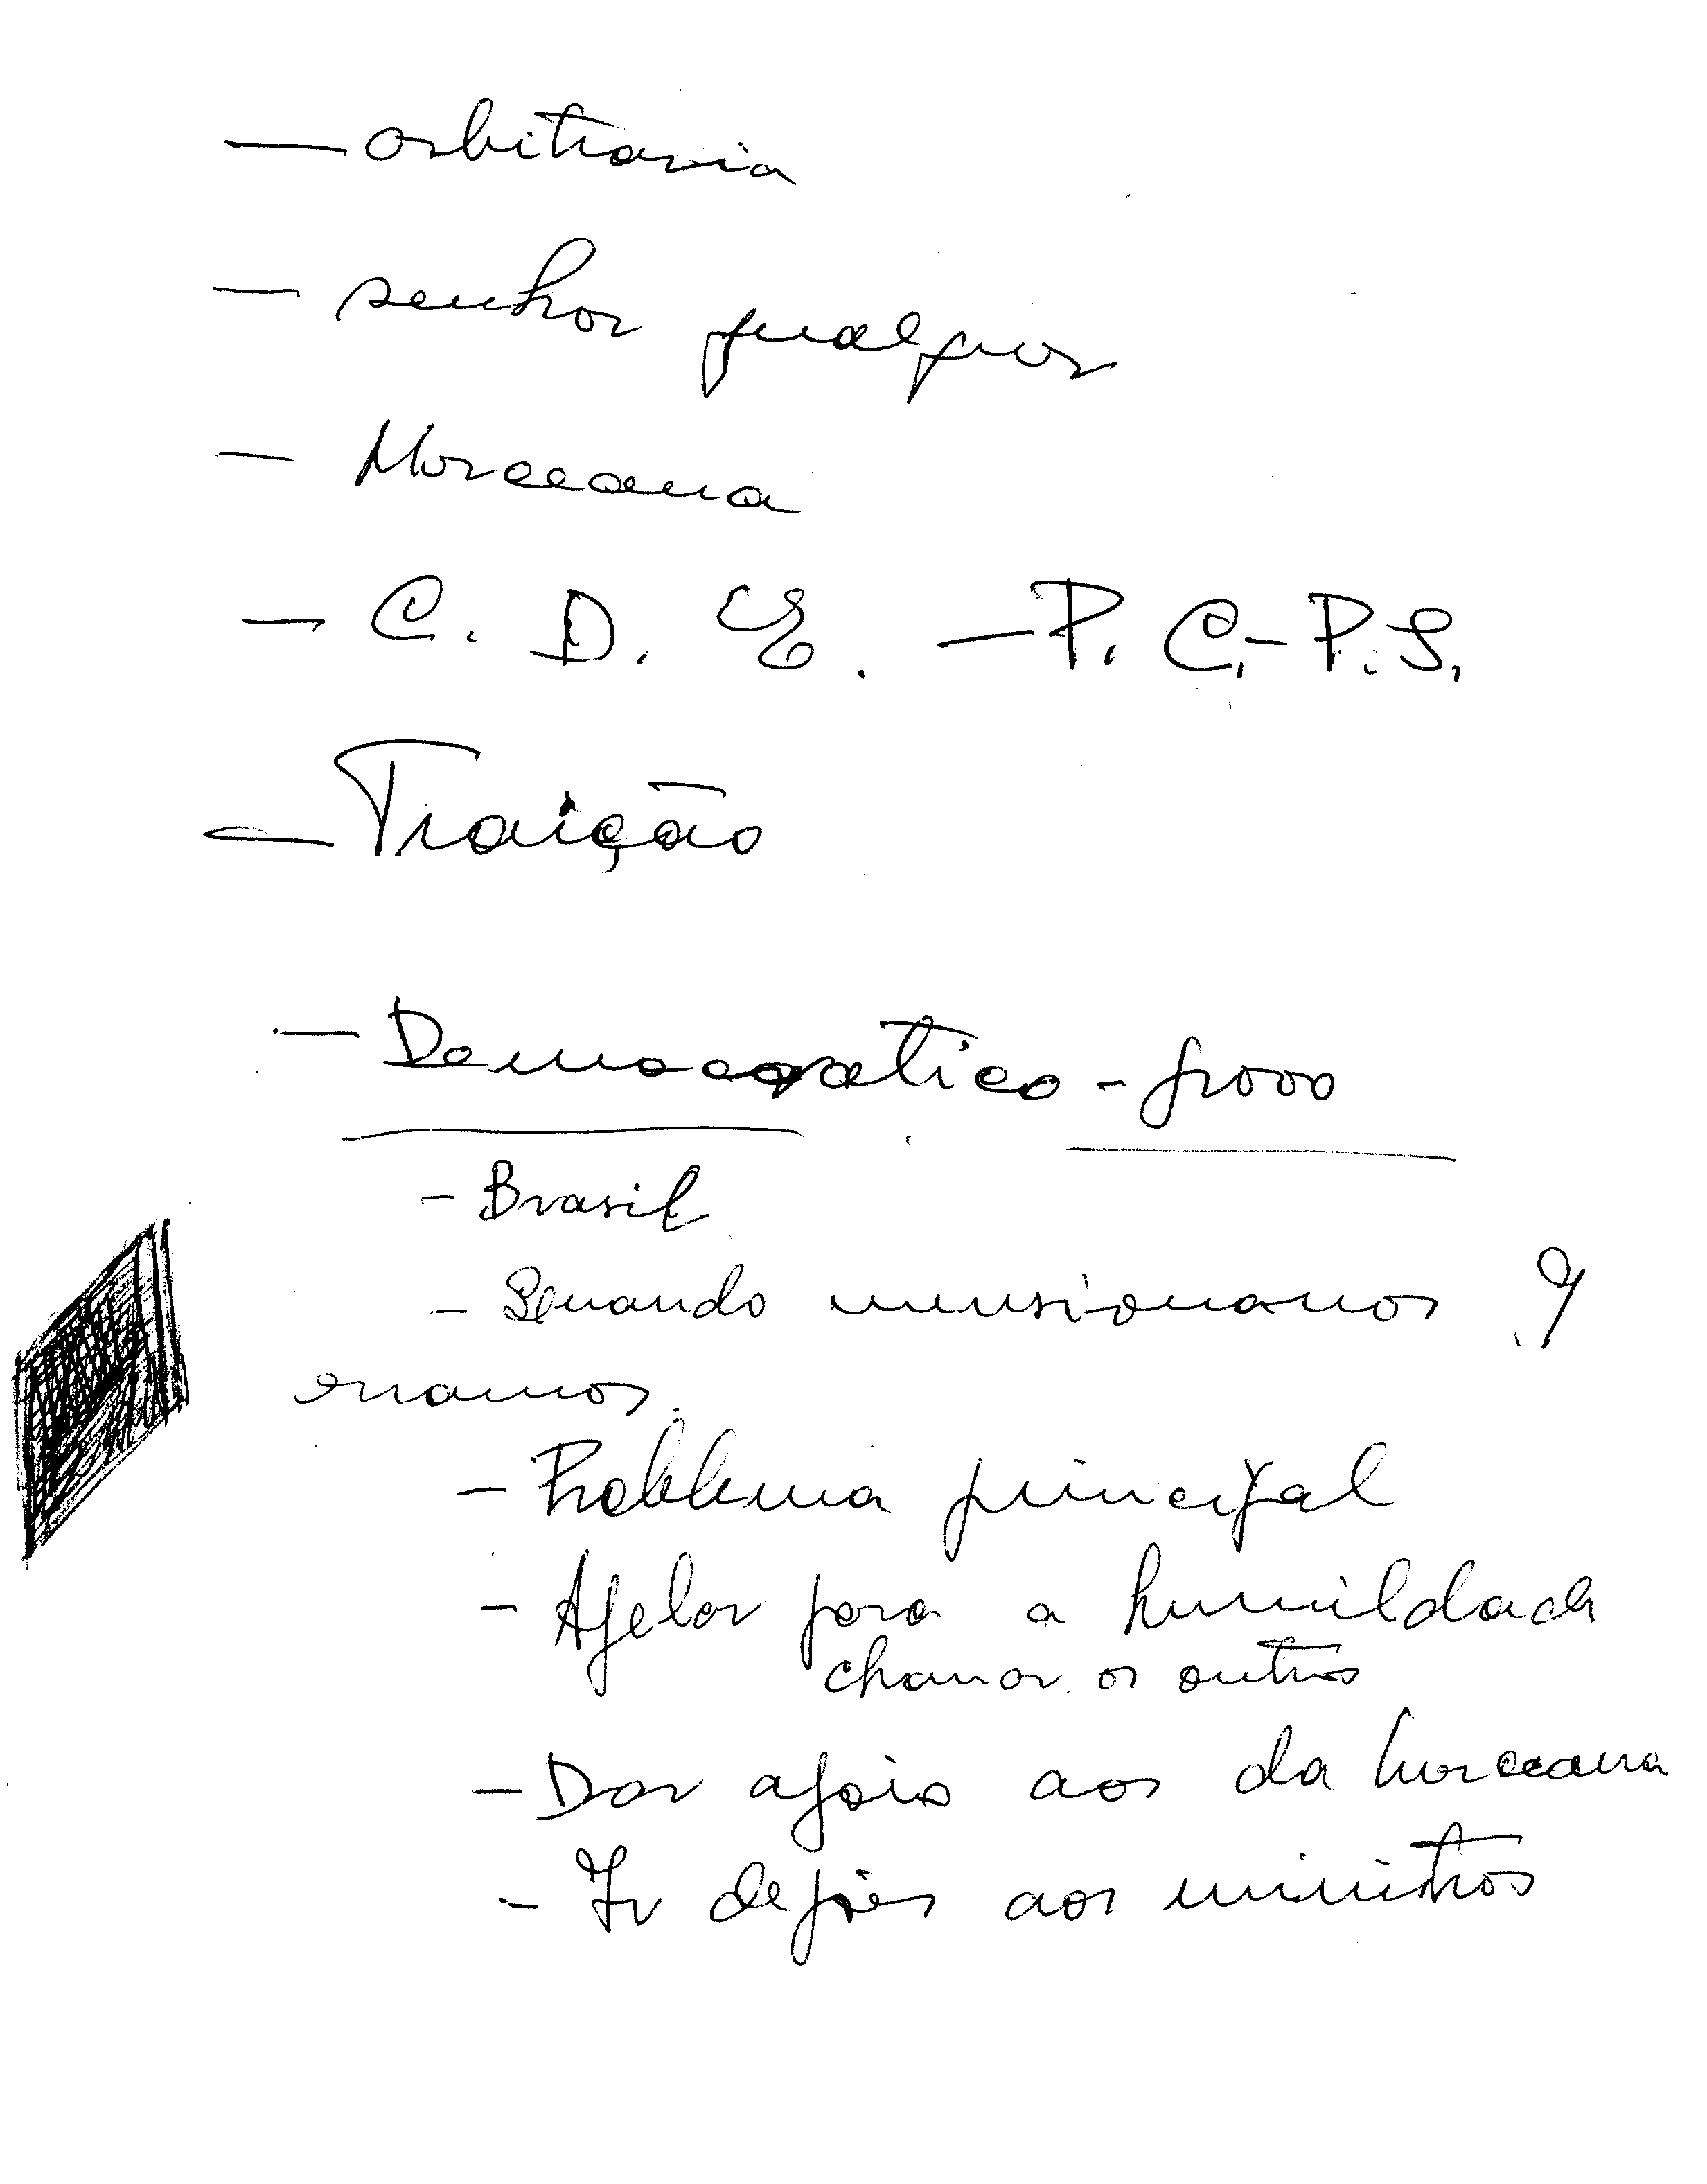 — arbitraria
— senhor qualquer
— Morceana
— C. D. E. — P. C. - P. S.
— Traição
— Democratico - povo
- Brasil
- Quando mensionamos ?
erramos.
- Problema principal
- Apelar para a humildade
chamar os outros
- Dar apoio aos da morceana
- Ir depois aos ministros